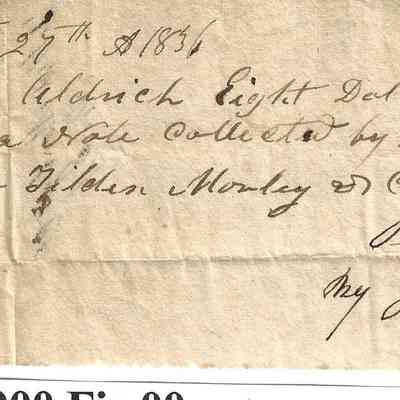 27th A 1836
Aldrich Eight Dol
a Note Collected by
Tilden Mouley & C
My